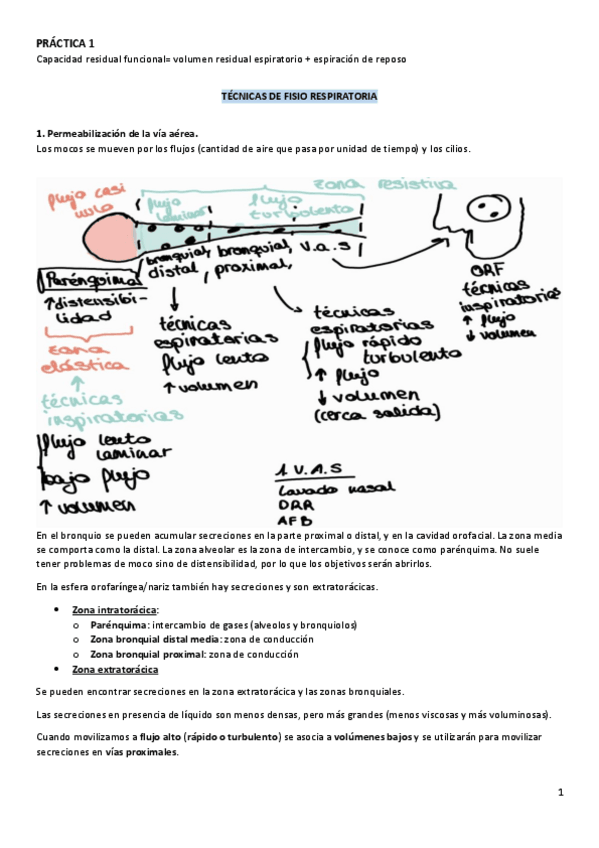 PRÁCTICA 1
Capacidad residual funcional= volumen residual espiratorio + espiración de reposo
TÉCNICAS DE FISIO RESPIRATORIA
1. Permeabilización de la vía aérea.
Los mocos se mueven por los flujos (cantidad de aire que pasa por unidad de tiempo) y los cilios.
flujo casi
nulo
flujo
laminar
flujo
turbulento
zona resistiva
bronquial, bronquial, v.a.s
distal, proximal,
Parénquima
↑distensibi-
lidad
zona
elástica
↑
técnicas
inspiratorias
flujo lento
laminar
bajo flujo
↑ volumen
técnicas
espiratorias
flujo lento
↑ volumen
técnicas
espiratorias
flujo rápido
turbulento
↑ flujo
↓ volumen
(cerca salida)
ORF
técnicas
inspiratorias
↑ flujo
↓ volumen
1 V.A.S
Lavado nasal
DRR
AFB
En el bronquio se pueden acumular secreciones en la parte proximal o distal, y en la cavidad orofacial. La zona media
se comporta como la distal. La zona alveolar es la zona de intercambio, y se conoce como parénquima. No suele
tener problemas de moco sino de distensibilidad, por lo que los objetivos serán abrirlos.
En la esfera orofaríngea/nariz también hay secreciones y son extratorácicas.
• Zona intratorácica:
o Parénquima: intercambio de gases (alveolos y bronquiolos)
o Zona bronquial distal media: zona de conducción
o Zona bronquial proximal: zona de conducción
• Zona extratorácica
Se pueden encontrar secreciones en la zona extratorácica y las zonas bronquiales.
Las secreciones en presencia de líquido son menos densas, pero más grandes (menos viscosas y más voluminosas).
Cuando movilizamos a flujo alto (rápido o turbulento) se asocia a volúmenes bajos y se utilizarán para movilizar
secreciones en vías proximales.
1